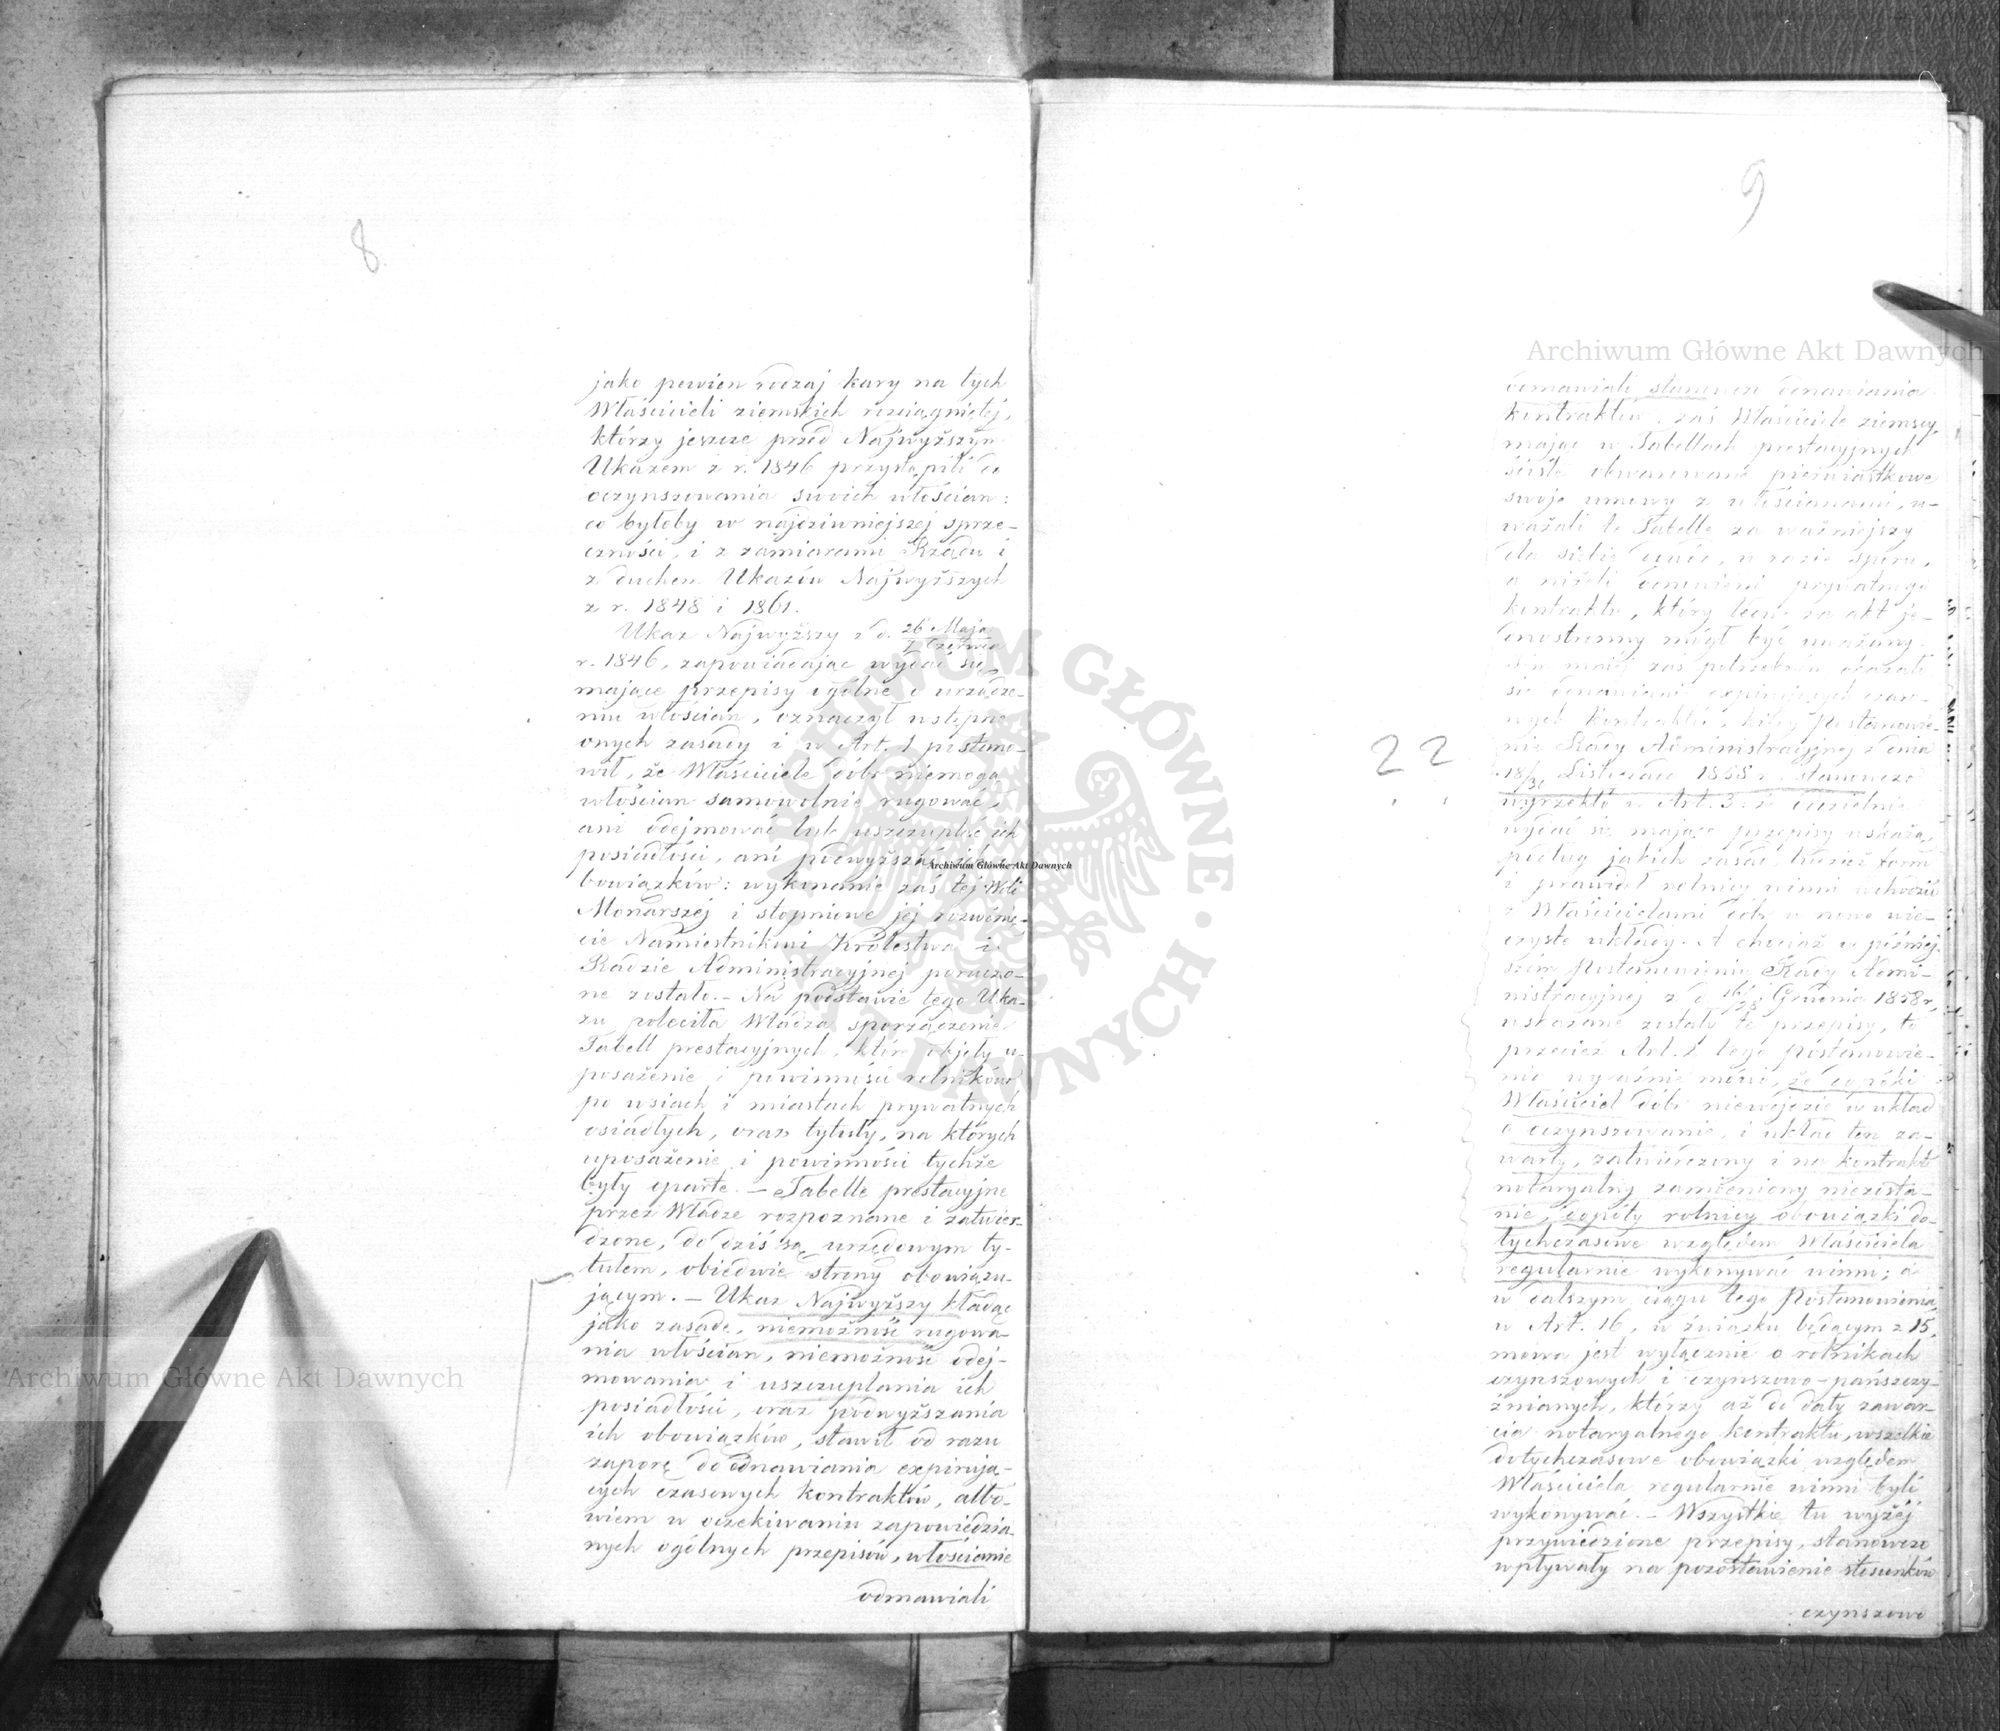 8
jako pewien rodzaj kary na tych
Właścicieli ziemskich rozciągniętej,
którzy jeszcze przed Najwyższym
Ukazem z r. 1846 przystąpili do
oczynszowania swoich włościan:
co byłoby w najdziwniejszej sprze-
czności, i z zamiarami Rządu i
z duchem Ukazów Najwyższych
z r. 1848 i 1861.
Ukaz Najwyższy z d. 26 Maja / 7 Czerwca
r. 1846, zapowiadając wydać się
mające przepisy ogólne o urządze-
niu włościan, oznaczył wstępne
onych zasady i w Art. 1 postano-
wił, że Właściciele dóbr niemogą
włościan samowolnie rugować,
ani odejmować lub uszczuplać ich
posiadłości, ani podwyższać ich o-
bowiązków: wykonanie zaś tej Woli
Monarszej i stopniowe jej rozwinię-
cie Namiestnikowi Królestwa i
Radzie Administracyjnej poruczo-
ne zostało. – Na podstawie tego Uka-
zu poleciła Władza sporządzenie
Tabell prestacyjnych, które objęły u-
posażenie i powinności rolników
po wsiach i miastach prywatnych
osiadłych, oraz tytuły, na których
uposażenie i powinności tychże
były oparte. – Tabelle prestacyjne
przez Władze rozpoznane i zatwier-
dzone, do dziś są urzędowym ty-
tułem, obiedwie strony obowiązu-
jącym. – Ukaz Najwyższy kładąc
jako zasadę, niemożność rugowa-
nia włościan, niemożność odej-
mowania i uszczuplania ich
posiadłości, oraz podwyższania
ich obowiązków, stawił od razu
zaporę do odnawiania expirują-
cych czasowych kontraktów, albo-
wiem w oczekiwaniu zapowiedzia-
nych ogólnych przepisów, włościanie
odmawiali
9
odmawiali stanowczo odnawiania
kontraktów, zaś Właściciele ziemscy,
mając w Tabellach prestacyjnych
ściśle obwarowane pierwiastkowe
swoje umowy z włościanami, u-
ważali te Tabelle za ważniejszy
dla siebie w razie sporu,
a niżeli odmówienie prywatnego
kontraktu, który za akt je-
dnostronny mógł być uważany.
mniej zaś potrzebném okazało
się odnawianie expirujących czaso-
wych kontraktów, kiedy Postanowie-
nie Rady Administracyjnej z dnia
Listopada 1858 r. stanowczo
wyrzekło w Art. 3: że oddzielnie
wydać się mające przepisy wskażą,
podług jakich zasad, tudzież form
i prawideł rolnicy winni wchodzić
z Właścicielami dóbr w nowe wie-
czyste układy. A chociaż w później-
szém Postanowieniu Rady Admi-
nistracyjnej z d. 16/28 Grudnia 1858 r.
wskazane zostały te przepisy, to
przecież Art. 1 tego Postanowie-
nia wyraźnie mówi, że dopóki
Właściciel dóbr niewejdzie w układ
o oczynszowanie, i układ ten za-
warty, zatwierdzony i na kontrakt
notaryalny zamieniony niezosta-
nie, dopóty rolnicy obowiązki do-
tychczasowe względem Właściciela
regularnie wykonywać winni; a
w dalszym ciągu tego Postanowienia
w Art. 16, w związku będącym z 15,
mowa jest wyłącznie o rolnikach
czynszowych i czynszowo-pańszczy-
źnianych, którzy aż do daty zawar-
cia notaryalnego kontraktu, wszelkie
dotychczasowe obowiązki względem
Właściciela regularnie winni byli
wykonywać. – Wszystkie tu wyżej
przywiedzione przepisy, stanowczo
wpływały na pozostawienie stosunków
czynszowo
? ?
Archiwum Główne Akt Dawnych
Archiwum Główne Akt Dawnych
Archiwum Główne Akt Dawnych
ARCHIWUM GŁÓWNE AKT DAWNYCH